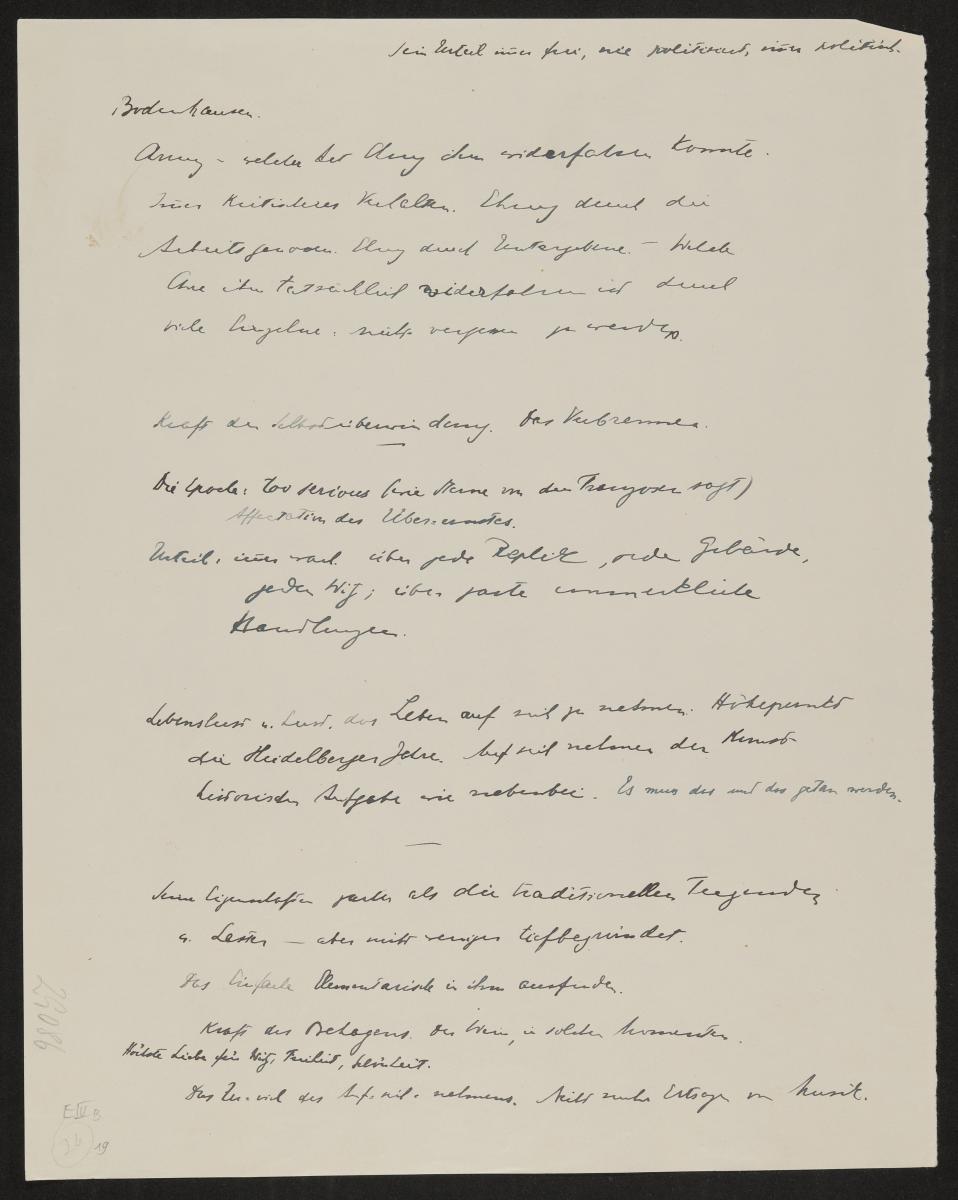 Sein Urteil immer frei, nie politisiert, immer politisch.
Bodenhausen.
welcher Art ihm widerfahren konnte.
Immer kritisches Verhalten. Ehrung durch die
Arbeitsgenossen. Ehrung durch Untergebene. – Welche
Ehre ihm tatsächlich widerfahren ist durch
viele Einzelne: nicht vergessen zu werden.
Kraft der Selbstüberwindung. Das Verbrennen.
Die Epoche: too serious (wie Sterne von den Franzosen sagt)
Affectation des Über-ernstes.
Urteil: immer wach über jede Replik, jede Gebärde,
jeden Witz; über zarte unmerkliche
Handlungen.
Lebenslust u. Lust, das Leben auf sich zu nehmen. Höhepunkt
die Heidelberger Jahre. Auf sich nehmen der Kunst-
historischen Aufgabe wie nebenbei. Es muss das und das getan werden.
Seine Eigenschaften zarter als die traditionellen Tugenden
u. Laster – aber nicht weniger tiefbegründet.
Das Einfache Elementarische in ihm ausfinden.
Kraft des Behagens. Der Wein, in solchen Momenten.
Höchste Liebe für Witz, Freiheit, Schönheit.
Das Zu-viel des Auf-sich-nehmens. Nicht mehr Ertragen von Musik.
98032
E IV B
19